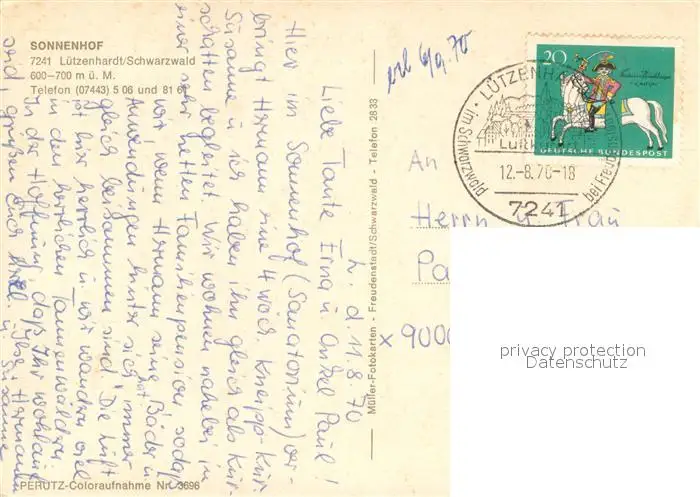 SONNENHOF
7241 Lützenhardt/Schwarzwald
600–700 m ü. M.
Telefon (07443) 5 06 und 81 6
L. d. 11. 8. 70
Liebe Tante Erna u. Onkel Paul!
Hier im Sonnenhof (Sanatorium) ver-
bringt Hermann eine 4 wöch. Kneipp-Kur
Susanne u. ich haben ihn gleich als Kur-
schatten begleitet. Wir wohnen nahebei in
einer sehr netten Familienpension, sodaß
wir wenn Hermann seine Bäder u.
Anwendungen hinter sich hat immer
gleich beisammen sind. Die Luft
ist hier herrlich u. wir wandern viel
in den herrlichen Tannenwäldern
In der Hoffnung, daß Ihr wohlauf
seid, grüßen Euch
Hermann
u. Susanne
PERUTZ-Coloraufnahme Nr. 3696
Müller-Fotokarten - Freudenstadt/Schwarzwald - Telefon 2833
erh 6/9. 70
20
DEUTSCHE BUNDESPOST
LÜTZENHARDT
Luftk
im Schwarzwald
bei Freudenstadt
12.-8.70-18
7241
An
Herrn u. Frau
Pa
x 9000
privacy protection
Datenschutz